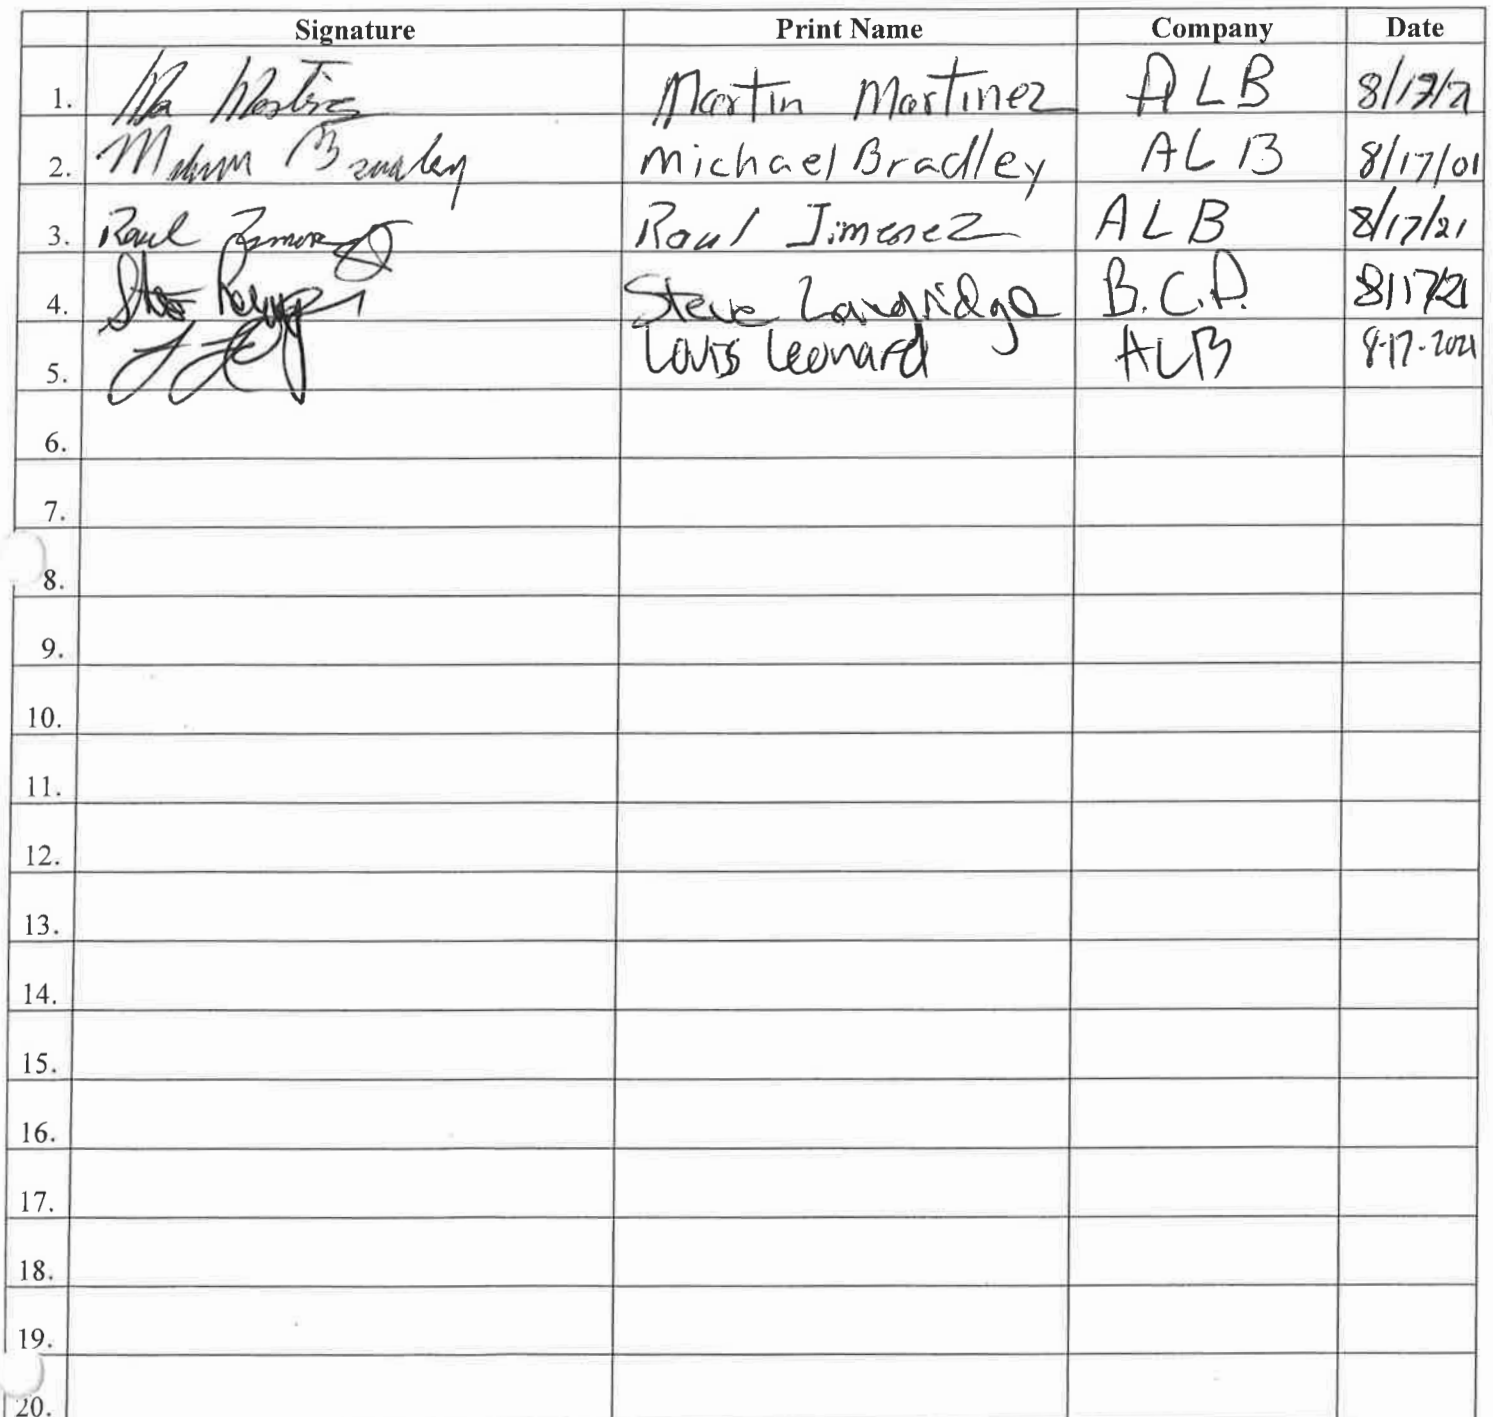 Signature Print Name Company Date
1. Martin Martinez ALB 8/17/21
2. Michael Bradley ALB 8/17/01
3. Raul Jimenez ALB 8/17/21
4. Steve Langridge B.C.P. 8/17/21
5. Louis Leonard ALB 8-17-2021
6.
7.
8.
9.
10.
11.
12.
13.
14.
15.
16.
17.
18.
19.
20.